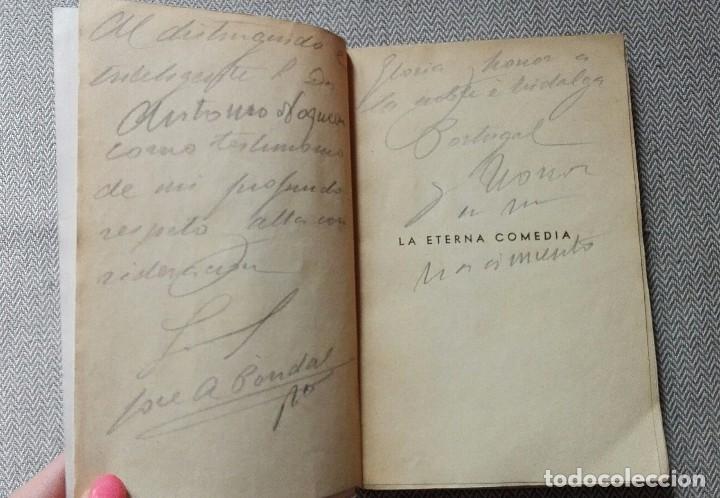 Al distinguido e
inteligente Sr Don
Antonio Noguera
como testimonio
de mi profundo
respeto alta con
sideración
José A Bondal
Gloria y honor a
la noble é hidalga
Portugal
y Honor
en su
LA ETERNA COMEDIA
nacimiento
todocoleccion
todocoleccion.net